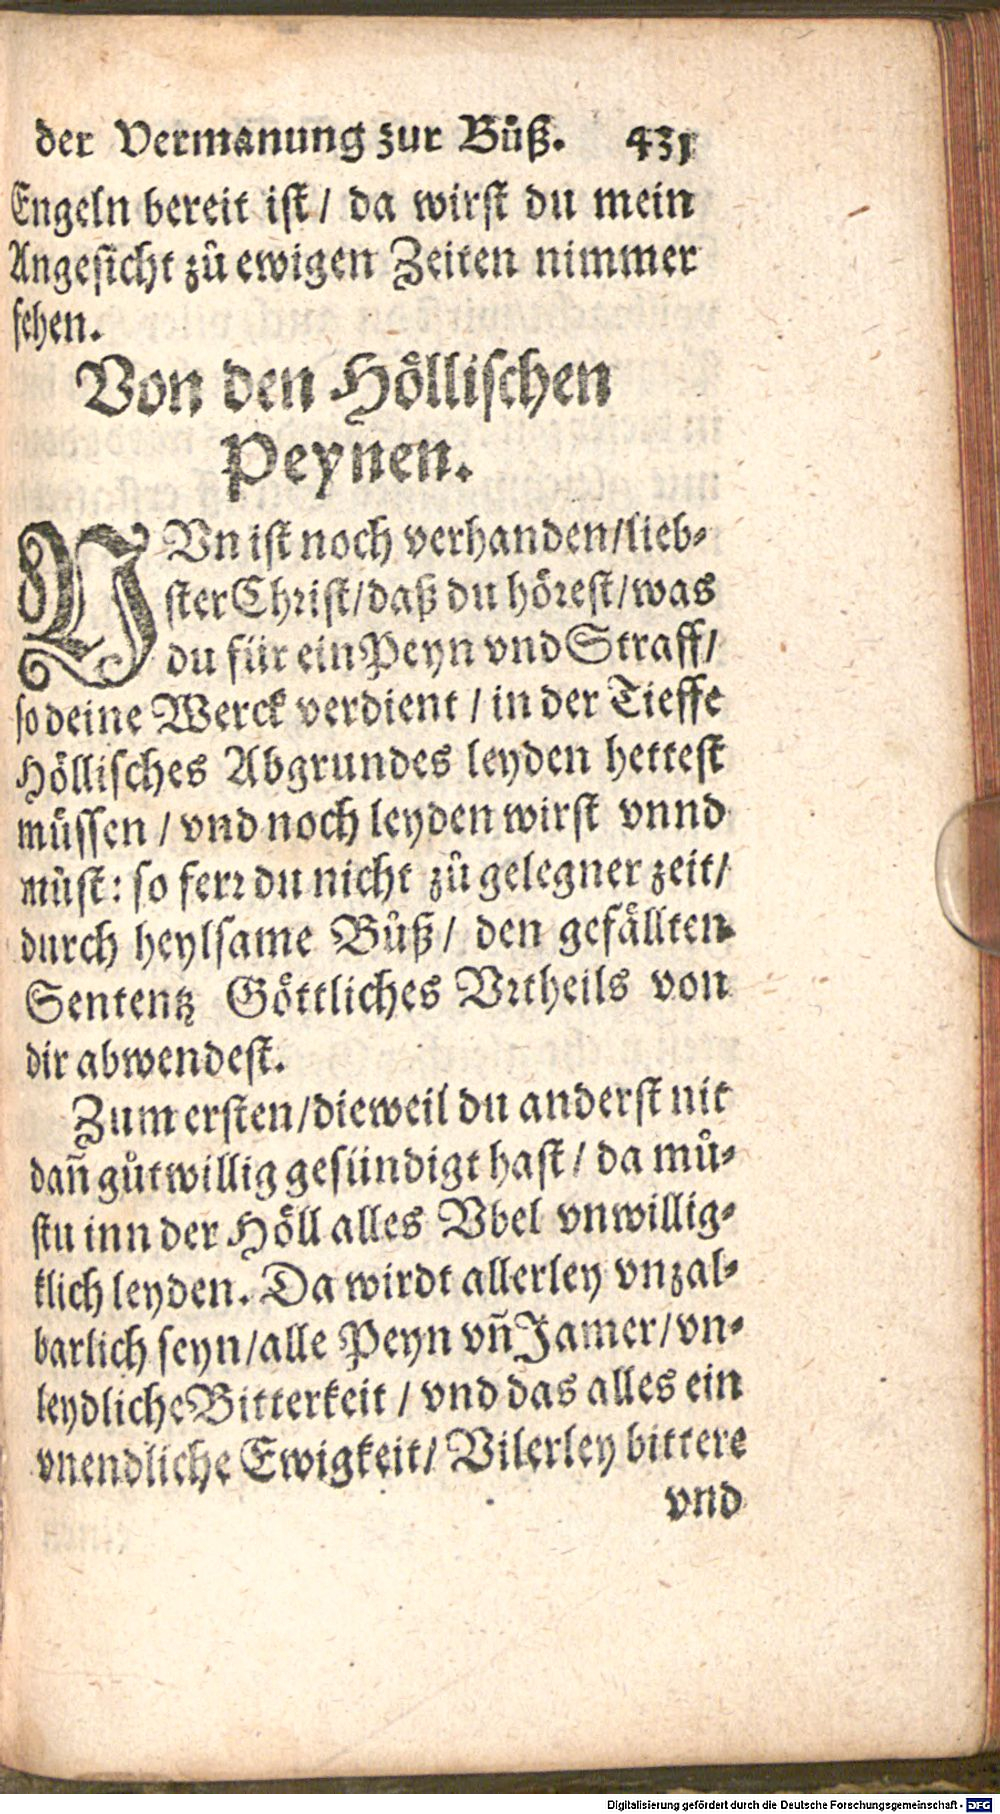 der Vermanung zur Bůß. 431
Engeln bereit ist / da wirst du mein
Angesicht zů ewigen Zeiten nimmer
sehen.
Von den Höllischen
Peynen.
NVn ist noch verhanden / lieb-
ster Christ / daß du hörest / was
du für ein Peyn vnd Straff /
so deine Werck verdient / in der Tieffe
Höllisches Abgrundes leyden hettest
müssen / vnd noch leyden wirst vnnd
můst: so ferr du nicht zů gelegner zeit /
durch heylsame Bůß / den gefällten
Sententz Göttliches Vrtheils von
dir abwendest.
Zum ersten / dieweil du anderst nit
dañ gůtwillig gesündigt hast / da mů-
stu inn der Höll alles Vbel vnwillig-
klich leyden. Da wirdt allerley vnzal-
barlich seyn / alle Peyn vñ Jamer / vn-
leydliche Bitterkeit / vnd das alles ein
vnendliche Ewigkeit / Vilerley bittere
vnd
Digitalisierung gefördert durch die Deutsche Forschungsgemeinschaft - DFG